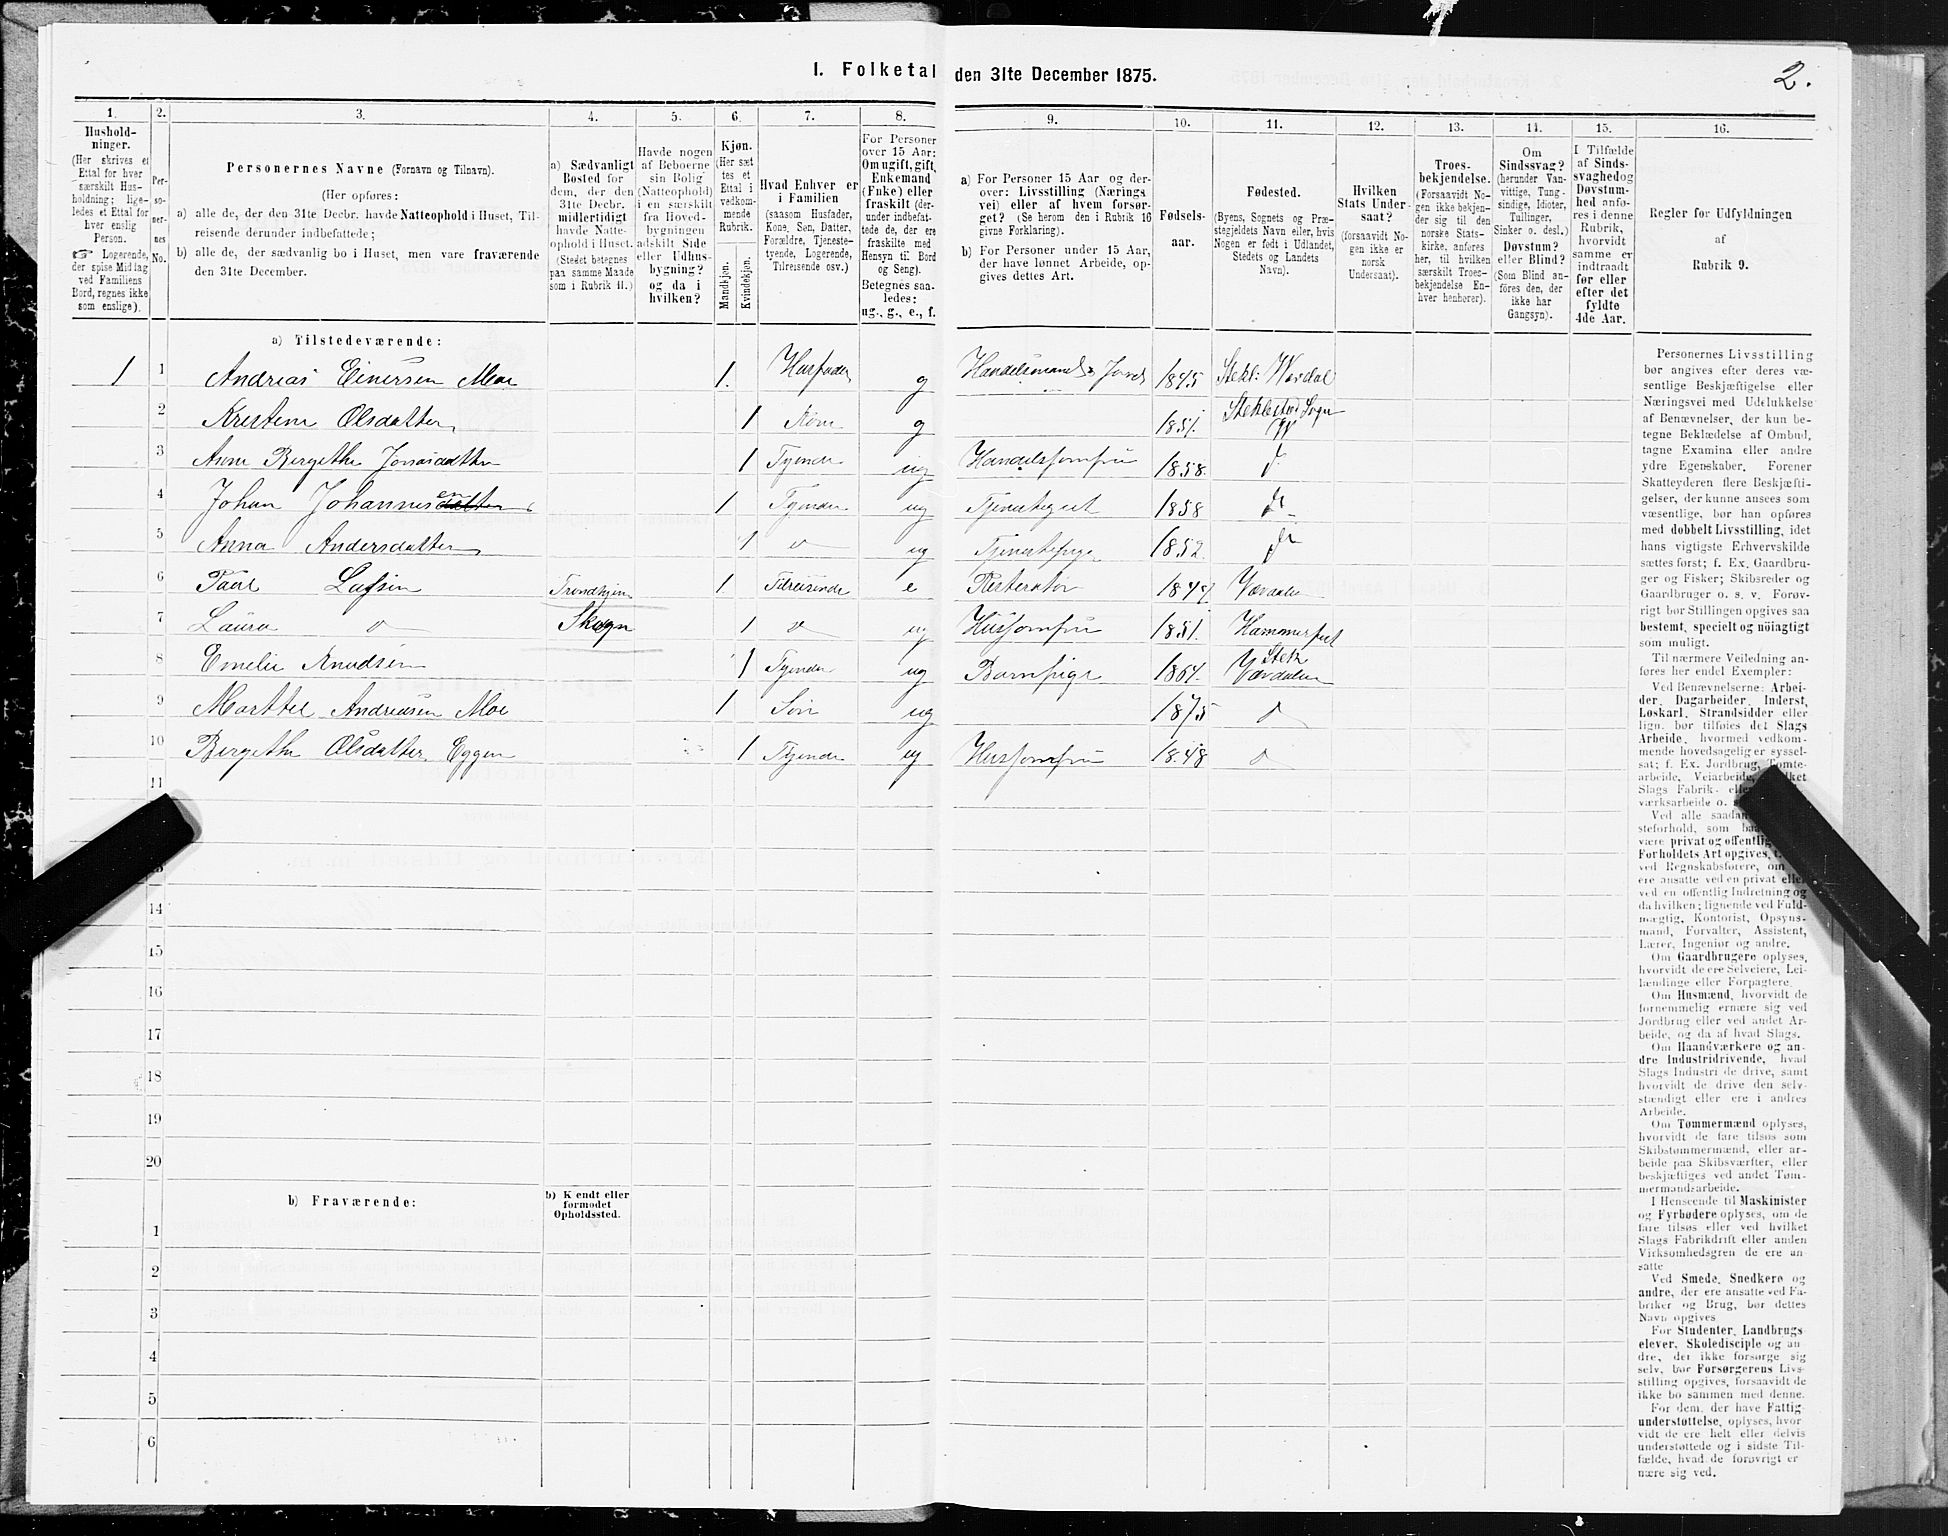 I. Folketal den 31te December 1875.
2.
1. 2. 3. 4. 5. 6. 7. 8. 9. 10. 11. 12. 13. 14. 15. 16.
Hushold-
ninger.
(Her skrives et
Ettal for hver
særskilt Hus-
holdning; lige-
ledes et Ettal for
hver enslig
Person.
☞ Logerende,
der spise Middag
ved Familiens
Bord, regnes ikke
som enslige).
Per-
soner-
nes
No.
Personernes Navne (Fornavn og Tilnavn).
(Her opføres:
a) alle de, der den 31te Decbr. havde Natteophold i Huset, Til-
reisende derunder indbefattede;
b) alle de, der sædvanlig bo i Huset, men vare fraværende
den 31te December.
a) Sædvanligt
Bosted for
dem, der den
31te Decbr.
midlertidigt
havde Natte-
ophold i Huset.
(Stedet betegnes
paa samme Maade
som i Rubrik 11.)
Havde nogen
af Beboerne
sin Bolig
(Natteophold)
i en særskilt
fra Hoved-
bygningen
adskilt Side
eller Udhus-
bygning?
og da i
hvilken?
Kjøn.
(Her sæt-
tes et
Ettal i
vedkom-
mende
Rubrik.
Mandkjøn.
Kvindekjøn.
Hvad Enhver er
i Familien
(saasom Husfader,
Kone, Søn, Datter,
Forældre, Tjeneste-
tyende, Logerende,
Tilreisende osv.)
For Personer
over 15 Aar:
Om ugift, gift,
Enkemand
(Enke) eller
fraskilt (der-
under indbefat-
tede de, der ere
fraskilte med
Hensyn til Bord
og Seng).
Betegnes saa-
ledes:
ug., g., e., f.
a) For Personer 15 Aar og der-
over: Livsstilling (Nærings-
vei) eller af hvem forsør-
get? (Se herom den i Rubrik 16
givne Forklaring).
b) For Personer under 15 Aar,
der have lønnet Arbeide, op-
gives dettes Art.
Fødsels-
aar.
Fødested.
(Byens, Sognets og Præ-
stegjeldets Navn eller, hvis
Nogen er født i Udlandet,
Stedets og Landets
Navn).
Hvilken
Stats Under-
saat?
(forsaavidt No-
gen ikke er
norsk
Undersaat).
Troes-
bekjendelse.
(Forsaavidt No-
gen ikke bekjen-
der sig til den
norske Stats-
kirke, anføres
her, til hvilken
særskilt Troes-
bekjendelse En-
hver henhører).
Om
Sindssvag?
(herunder Van-
vittige, Tung-
sindige, Idioter,
Tullinger,
Sinker o. desl.)
Døvstum?
eller Blind?
(Som Blind an-
föres den, der
ikke har
Gangsyn).
I Tilfælde
af Sinds-
svaghed og
Døvstum-
hed anfø-
res i denne
Rubrik,
hvorvidt
samme er
indtraadt
før eller
efter det
fyldte
4de Aar.
Regler for Udfyldningen
af
Rubrik 9.
a) Tilstedeværende:
1 1 Andreas Einersen Moe 1. Husfader g 1845 Stekl: Værdal
2 Kristine Olsdatter 1 Kone g 1851. Steklestad Sogn
3 Anne Bergethe Jonasdatter 1 Tyende ug Handelsjomfru 1858.
4 Johan Johannesen 1 Tyende ug 1858
5 Anna Andersdatter 1 ug Tjenestepige 1852.
6 Trondhjem 1 Tilreisende e 184 Værdalen
7 Laura Skogn 1 ug Husjomfru 1851. Hammerfest
8 Emelie Knudsen 1 Tyende ug Barnpige 1864. Stek Værdalen
9 Andreasen Moe 1 Søn ug 1875
10 Bergethe Olsdatter Eggen 1 Tyende ug Husjomfru 1848
11
13
14
15
16
17
18
19
20
b) Fraværende:
b) Kjendt eller
formodet
Opholdssted.
1
2
3
4
5
6
Personernes Livsstilling
bør angives efter deres væ-
sentlige Beskjæftigelse eller
Næringsvei med Udelukkelse
af Benævnelser, der kun be-
tegne Beklædelse af Ombud,
tagne Examina eller andre
ydre Egenskaber. Forener
Skatteyderen flere Beskjæfti-
gelser, der kunne ansees som
væsentlige, bør han opføres
med dobbelt Livsstilling, idet
hans vigtigste Erhvervskilde
sættes først; f. Ex. Gaardbru-
ger og Fisker; Skibsreder og
Gaardbruger o. s. v. Forøv-
rigt bør Stillingen opgives saa
bestemt, specielt og nöiagtigt
som muligt.
Til nærmere Veiledning an-
føres her endel Exempler:
Ved Benævnelserne: Arbei-
der, Dagarbeider, Inderst,
Løskarl, Strandsidder eller
lign. bør tilføies det Slags
Arbeide, hvormed vedkom-
mende hovedsagelig er syssel-
sat; f. Ex. Jordbrug, Tomte-
arbeide, Veiarbeide,
Slags Fabrik-
værksarbeide o.
Ved alle
steforhold, som
være privat og offentlig
Forholdets Art opgives,
ved Regnskabsførere, om
ere ansatte ved en privat eller
ved en offentlig Indretning og
da hvilken; lignende ved Fuld-
mægtig, Kontorist, Opsyns-
mand, Forvalter, Assistent,
Lærer, Ingeniør og andre.
Om Gaardbrugere oplyses,
hvorvidt de ere Selveiere, Lei-
lændinge eller Forpagtere.
Om Husmænd, hvorvidt de
fornemmelig ernære sig ved
Jordbrug eller ved andet Ar-
beide, og da af hvad Slags.
Om Haandværkere og an-
dre Industridrivende, hvad
Slags Industri de drive, samt
hvorvidt de drive den selv-
stændigt eller ere i andres
Arbeide.
Om Tømmermænd oplyses,
hvorvidt de fare tilsøs som
Skibstømmermænd, eller ar-
beide paa Skibsværfter, eller
beskjæftiges ved andet Tøm-
mermandsarbeide.
I Henseende til Maskinister
og Fyrbødere oplyses, om de
fare tilsøs eller ved hvilket
Slags Fabrikdrift eller anden
Virksomhedsgren de ere an-
satte
Ved Smede, Snedkere og
andre, der ere ansatte ved Fa-
briker og Brug, bør dettes
Navn opgives
For Studenter, Landbrugs
elever, Skoledisciple og an-
dre, der ikke forsørge sig
selv, bør Forsørgerens Livs-
stilling opgives, forsaavidt de
ikke bo sammen med denne.
For dem, der have Fattig-
understøttelse, oplyses, hvor
vidt de ere helt eller delvis
understøttede og i sidste Til-
fælde, hvad de forøvrigt er
nære sig ved.